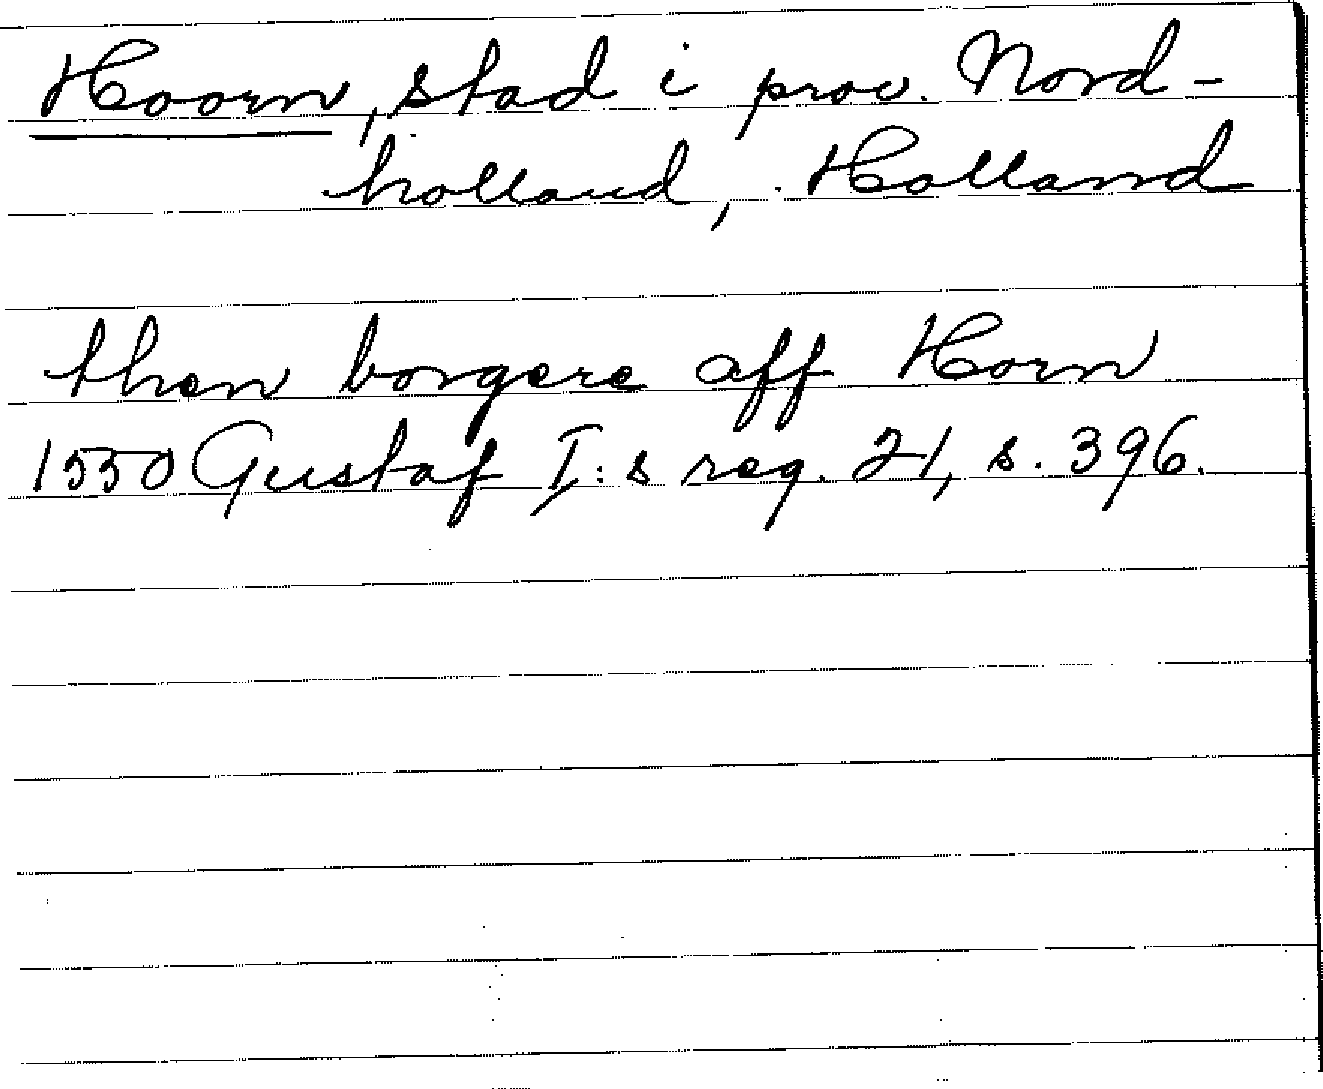 Hoorn, stad i prov. Nord-
holland, Holland
then borgere aff Horn
1550 Gustaf I:s reg. 21, s. 396.